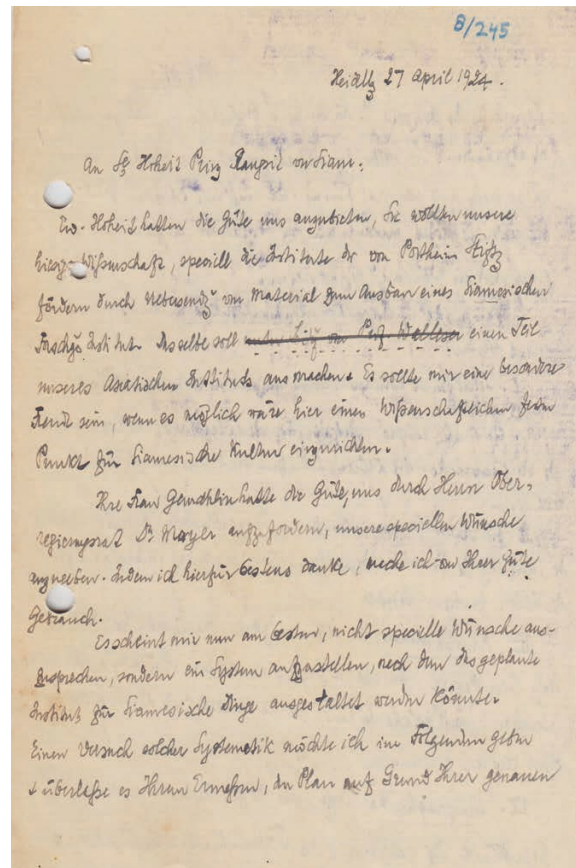 8/245
Heidbg 27 April 1924.
An Sr Hoheit Prinz Rangsit von Siam.
Ew. Hoheit hatten die Güte uns anzubieten, Sie wollten unsere
hiesige Wissenschaft, speciell die Institute der von Portheim Stiftg
fördern durch Uebersendg von Material zum Ausbau eines Siamesischen
Forschgs Instituts. Dasselbe soll unter Leitg von Prof. Walleser einen Teil
unseres Asiatischen Instituts ausmachen. Es sollte mir eine besondere
Freude sein, wenn es möglich wäre hier einen wissenschaftlichen
Punkt für Siamesische Kultur einzurichten.
Ihre Frau Gemahlin hatte die Güte, uns durch Herrn Ober-
regierungsrat Dr. Mayer aufzufordern, unsere speciellen Wünsche
anzugeben. Indem ich hierfür bestens danke, mache ich von Ihrer Güte
Gebrauch.
Es scheint mir nun am besten, nicht specielle Wünsche aus-
zusprechen, sondern ein System aufzustellen, nach dem das geplante
Institut für Siamesische Dinge ausgestaltet werden könnte.
Einen Versuch solcher Systematik möchte ich im Folgenden geben
& überlasse es Ihrem Ermessen, den Plan auf Grund Ihrer genauen